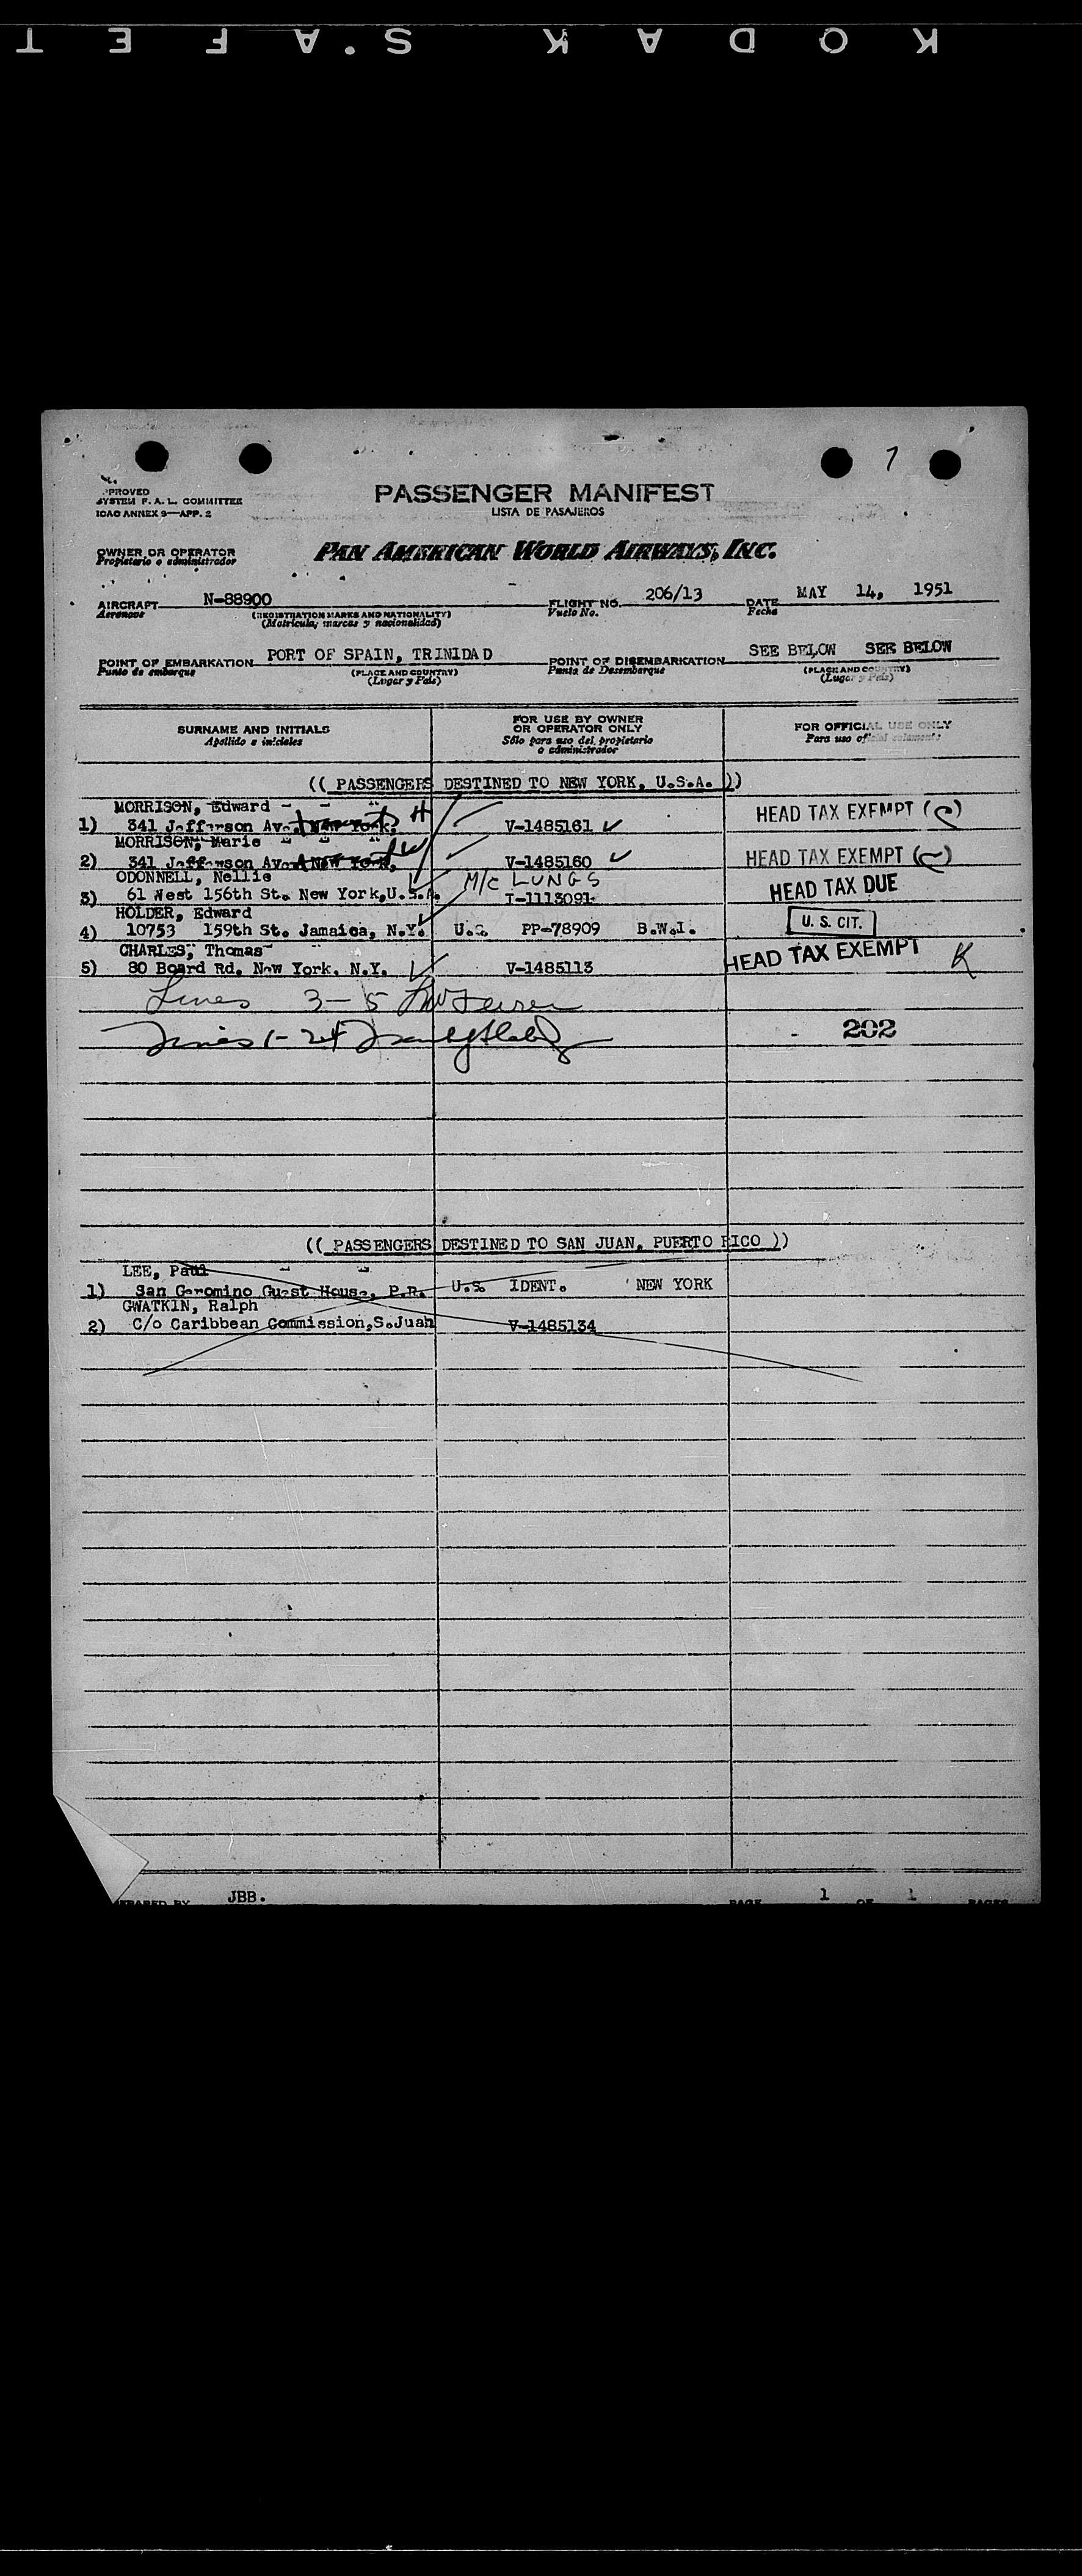 KODAK S.A.F.E T
7
PROVED
SYSTEM F. A. L. COMMITTEE
ICAO ANNEX 9—APP. 2
PASSENGER MANIFEST
LISTA DE PASAJEROS
OWNER OR OPERATOR
Propietario o administrador
PAN AMERICAN WORLD AIRWAYS, INC.
AIRCRAFT N-88900 FLIGHT NO. 206/13 DATE MAY 14, 1951
Aeronave (REGISTRATION MARKS AND NATIONALITY) Vuelo No. Fecha
(Matricula, marcas y nacionalidad)
POINT OF EMBARKATION PORT OF SPAIN, TRINIDAD POINT OF DISEMBARKATION SEE BELOW SEE BELOW
Punto de embarque (PLACE AND COUNTRY) Punta de Desembarque (PLACE AND COUNTRY)
(Lugar y País) (Lugar y País)
SURNAME AND INITIALS FOR USE BY OWNER OR OPERATOR ONLY FOR OFFICIAL USE ONLY
Apellido e iniciales Sólo para uso del propietario o administrador Para uso oficial solamente
(( PASSENGERS DESTINED TO NEW YORK, U.S.A. ))
MORRISON, Edward - - " H
1) 341 Jefferson Ave. New York, V-1485161 ✓ HEAD TAX EXEMPT
MORRISON, Marie " " "
2) 341 Jefferson Ave. New York, V-1485160 ✓ HEAD TAX EXEMPT
ODONNELL, Nellie M/C LUNGS
3) 61 West 156th St. New York,U.S.A. T-1113091 HEAD TAX DUE
HOLDER, Edward
4) 10753 159th St. Jamaica, N.Y. U.S. PP-78909 B.W.I. U. S. CIT.
CHARLES, Thomas "
5) 80 Board Rd. New York, N.Y. V-1485113 HEAD TAX EXEMPT K
Lines 3-5
Lines 1-2 - 202
(( PASSENGERS DESTINED TO SAN JUAN, PUERTO RICO ))
LEE, Paul - "
1) San Geromino Guest House, P.R. U.S. IDENT. NEW YORK
GWATKIN, Ralph
2) C/o Caribbean Commission,S.Juan V-1485134
PREPARED BY JBB. PAGE 1 OF 1 PAGES